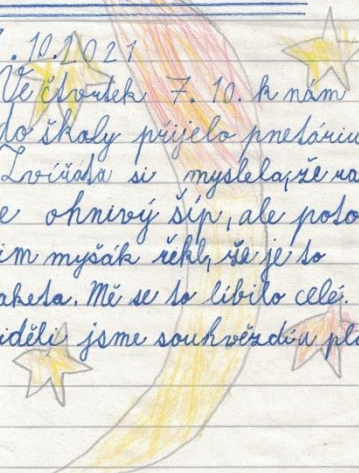 .10.2021
Ve čtvrtek 7. 10. k nám
do školy přijelo pnetáriu
Zvířáta si myslela, že ra
e ohnivý šíp, ale poto
im myšák řekl, že je to
aketa. Mě se to líbilo celé.
iděli jsme souhvězdí a pla